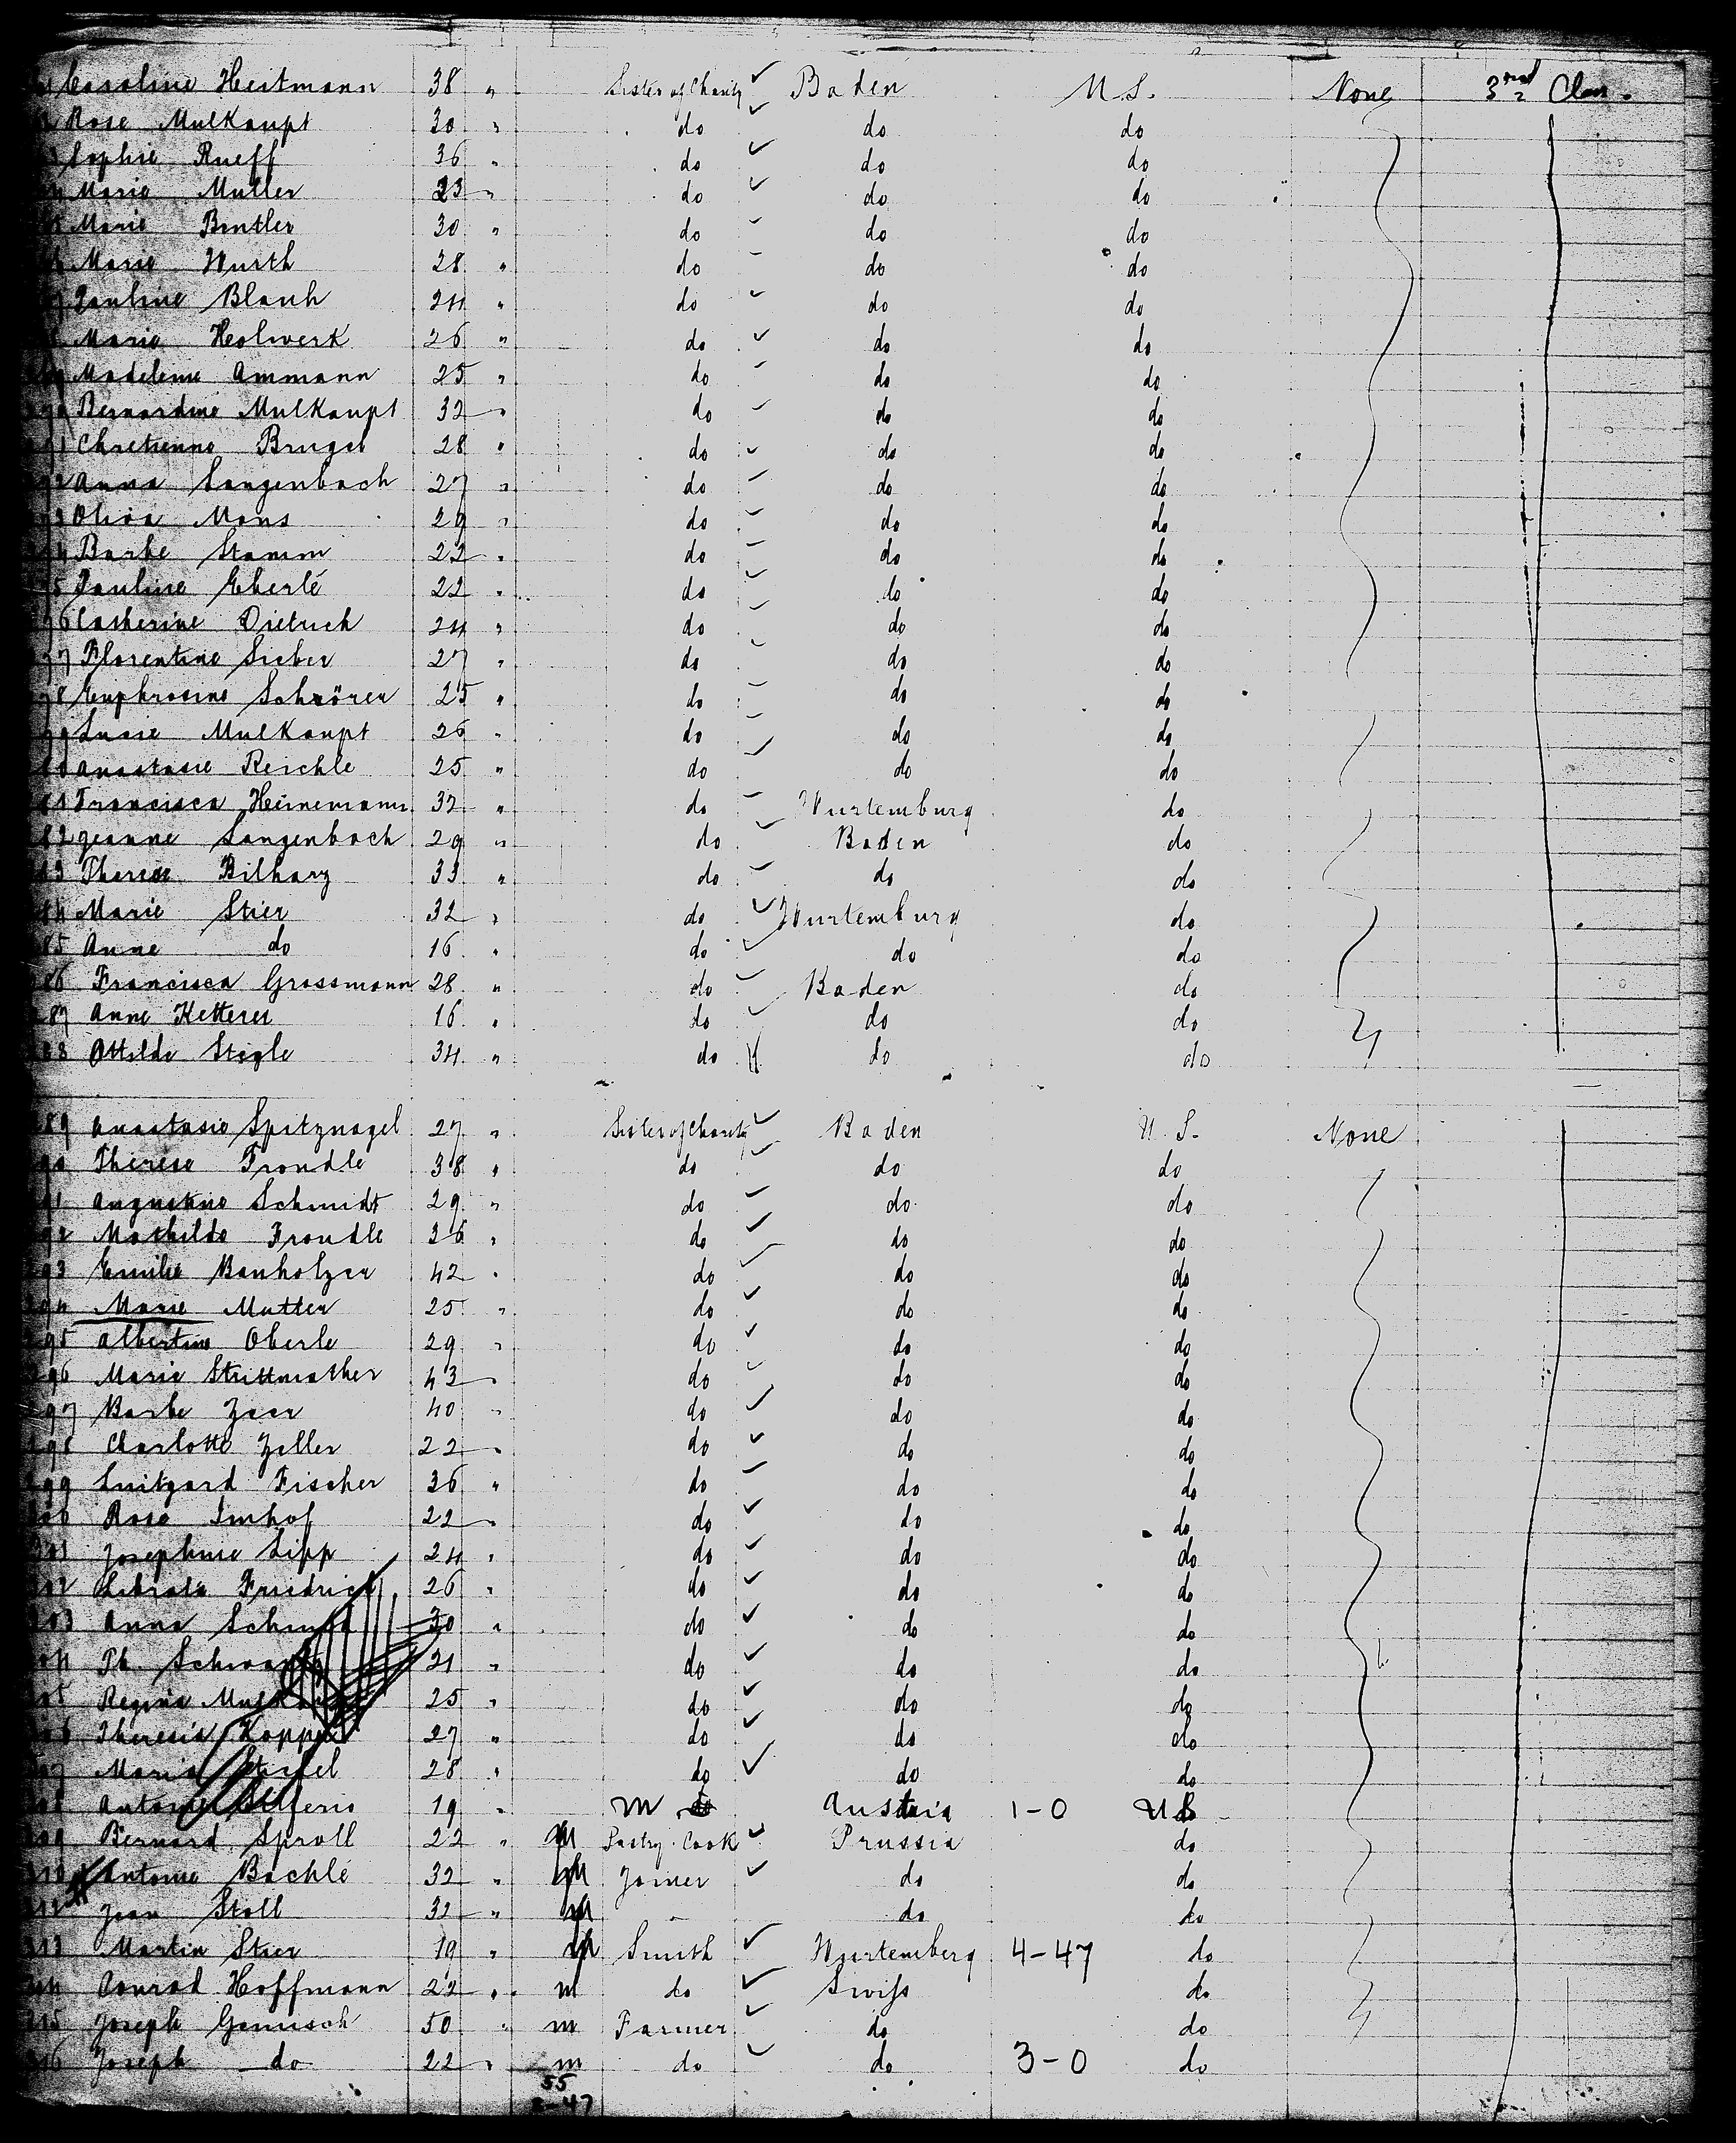 Caroline Heitmann 38 " Sister of Charity ✓ Baden U.S. None 3rd Class.
Rose Mulkaupt 30 " do ✓ do do
Sophie Rueff 36 " do ✓ do do
Marie Muller 23 " do ✓ do do
Marie Bentler 30 " do do do
Marie Wurth 28 " do do do
Pauline Blank 24 " do ✓ do do
Marie Holwerk 26 " do ✓ do do
Madeleine Ammann 25 " do do do
Bernardine Mulkaupt 32 " do do do
Chretienne Bruges 28 " do ✓ do do
Anna Langenbach 27 " do do do
Oliva Mans 29 " do do do
Barbe Stamm 22 " do do do
5 Pauline Eberlé 22 " do do do
96 Catherine Dietrich 24 " do do do
77 Florentine Sieber 27 " do do do
78 Euphrosine Schnörer 25 " do do do
Lucie Mulkaupt 26 " do do do
Anastasie Reichle 25 " do ✓ do do
81 Francisca Heinemann 32 " do Wurtemburg do
82 Jeanne Langenbach 29 " do Baden do
83 Therese Bilharz 33 " do do do
84 Marie Stier 32 " do ✓ Wurtemburg do
85 Anne do 16 " do ✓ do do
86 Francisca Grossmann 28 " do Baden do
87 Anne Ketterer 16 " do do do
88 Ottilde Stegle 34 " do do do
89 Anastasie Spitznagel 27 " Sister of Charity ✓ Baden U.S. None
90 Therese Trondle 38 " do ✓ do do
91 Augustine Schmidt 29 " do ✓ do do
92 Mathilde Trondle 36 " do ✓ do do
93 Emilie Banholzer 42 " do ✓ do do
94 Marie Mutter 25 " do ✓ do do
95 Albertine Oberle 29 " do ✓ do do
96 Marie Strittmather 43 " do ✓ do do
97 Barbe Zeer 40 " do ✓ do do
98 Charlotte Zeller 22 " do ✓ do do
99 Luitgard Fischer 36 " do ✓ do do
Rose Imhof 22 " do ✓ do do
301 Josephine Lipp 24 " do ✓ do do
302 Librata Friedrich 26 " do ✓ do do
303 Anna Schmid 30 " do ✓ do do
Th. Schwartz 21 " do ✓ do do
Regina 25 " do ✓ do do
Theresia Kopper 27 " do ✓ do do
Maria 28 " do ✓ do do
19 " m do Austria 1-0 U S
Bernard Sproll 22 " m Pastry Cook ✓ Prussia do
310 Antoine Bachlé 32 " m Joiner ✓ do do
Jean Stoll 32 " m do do
313 Martin Stier 19 " m Smith ✓ Wurtemberg 4-47 do
Conrad Hoffmann 22 " m do ✓ Swiss do
315 Joseph Gennisch 50 " m Farmer ✓ do do
316 Joseph do 22 " m do ✓ do 3-0 do
55
-47